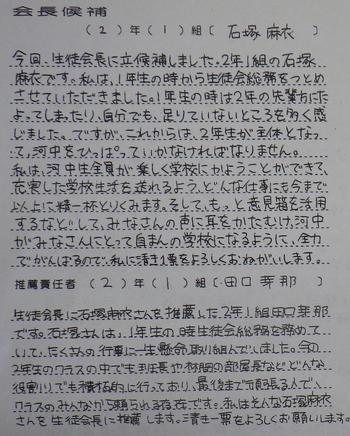 会長候補
(2)年(1)組〔石塚 麻衣
今回、生徒会長に立候補しました。2年1組の石塚
麻衣です。私は、1年生の時から生徒会総務をつとめ
させていただきました。1年生の時は2年の先輩方にた
よってしまったり、自分でも、足りていないところを多く感
じました。ですが、これからは、2年生が主体となっ
て、河中をひっぱっていかなければなりません。
私は、河中生全員が楽しく学校にかようことができて、
充実した学校生活を送れるよう、どんな仕事にも今まで
以上に精一杯とりくみます。そして、もっと意見箱を活用
するなどして、みなさんの声に耳をかたむけ、河中
がみなさんにとって自まんの学校になるように、全力
でがんばるので、私に清き1票をよろしくおねがいします。
推薦責任者 (2)年(1)組〔田口 芽那
生徒会長に石塚麻衣さんを推薦した、2年1組田口芽那
です。石塚さんは、1年生の時生徒会総務を務めて
いて、たくさんの行事に一生懸命取り組んでいました。今の
2年生のクラスの中でも班長や部屋長など、どんな
役割りでも積極的に行っており、最後まで頑張るんで、
クラスのみんなから頼られる存在です。私はそんな石塚麻衣
さんを生徒会長に推薦します。清き一票をよろしくお願いします。